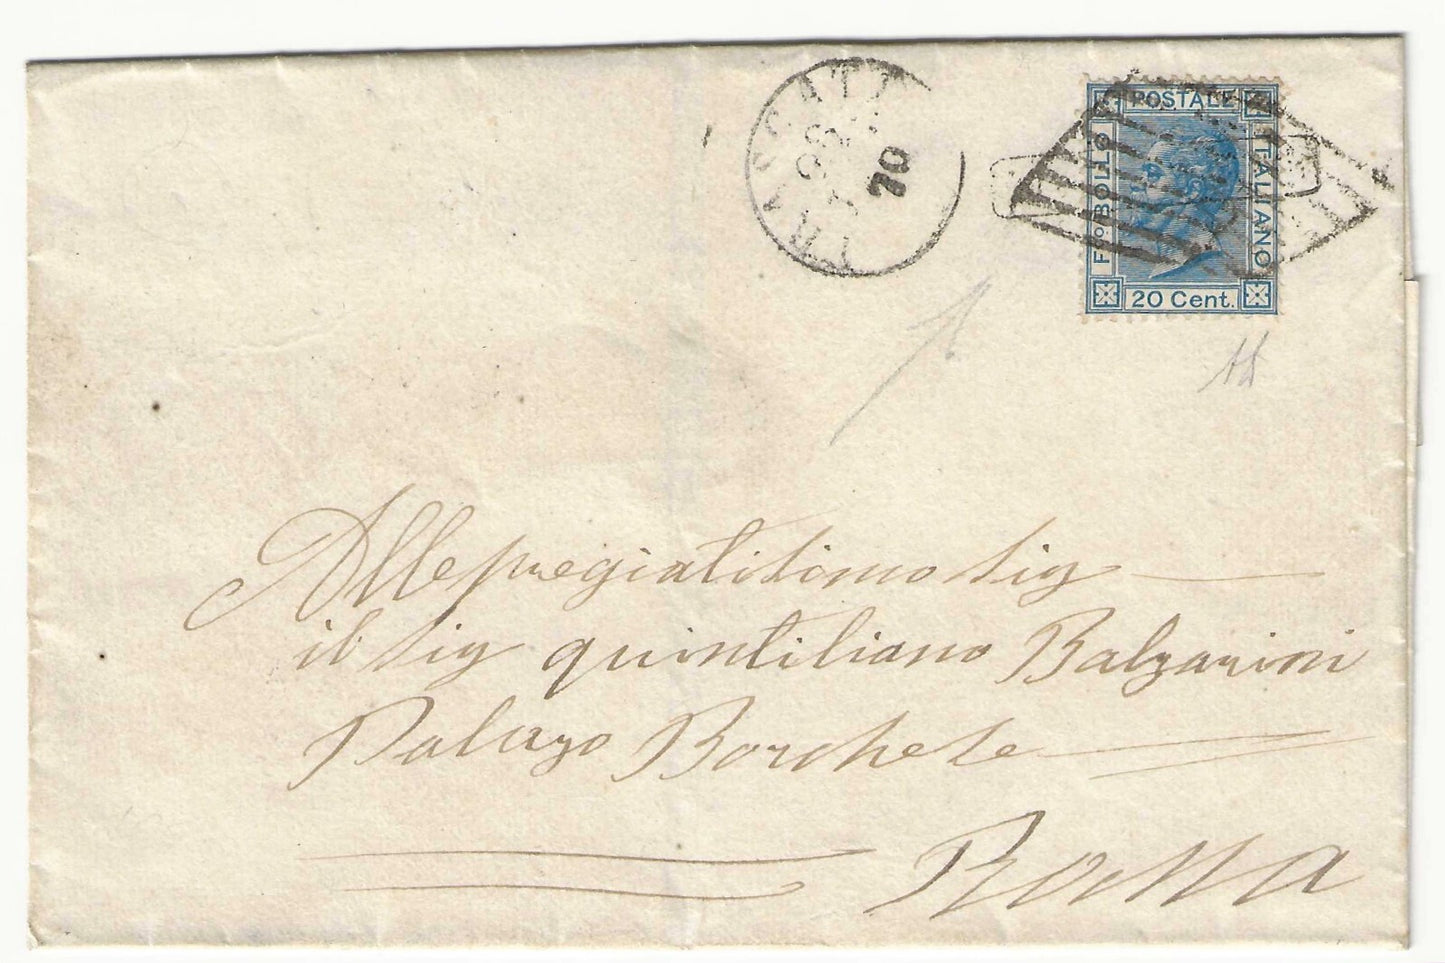 FRASCATI
70
POSTALE
F.co BOLLO
ITALIANO
20 Cent.
Allepregiatisimo sig
il sig quintiliano Balzarini
Palazzo Borchese
Roma